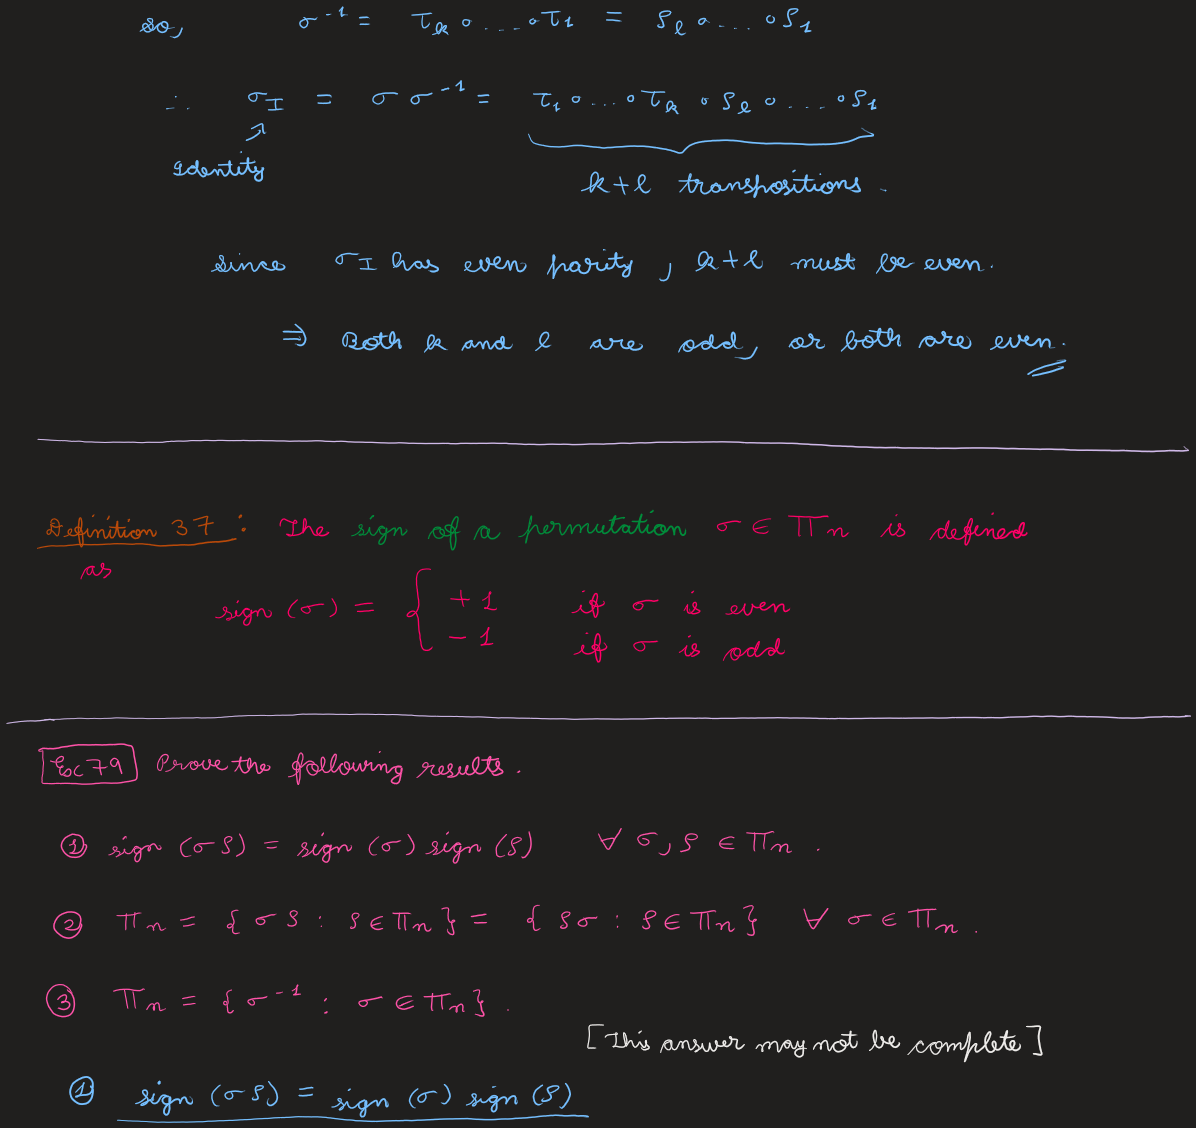 so, σ⁻¹ = τₖ ∘ .... ∘ τ₁ = ρₗ ∘ .... ∘ ρ₁
∴ σ_I = σ σ⁻¹ = τ₁ ∘ ... ∘ τₖ ∘ ρₗ ∘ .... ∘ ρ₁
Identity
k+l transpositions.
since σ_I has even parity, k+l must be even.
⇒ Both k and l are odd, or both are even.
Definition 37 : The sign of a permutation σ ∈ Πn is defined
as
sign (σ) = { +1 if σ is even
-1 if σ is odd
Exc 79 Prove the following results.
① sign (σρ) = sign (σ) sign (ρ) ∀ σ, ρ ∈ Πn.
② Πn = {σρ : ρ ∈ Πn} = {ρσ : ρ ∈ Πn} ∀ σ ∈ Πn.
③ Πn = {σ⁻¹ : σ ∈ Πn}.
[This answer may not be complete]
① sign (σρ) = sign (σ) sign (ρ)